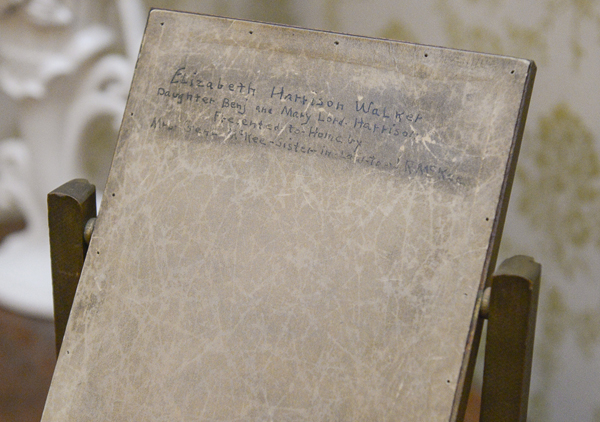 Elizabeth Harrison Walker
Daughter Benj and Mary Lord Harrison
Presented to Home by
sister-in-law to J R McKee